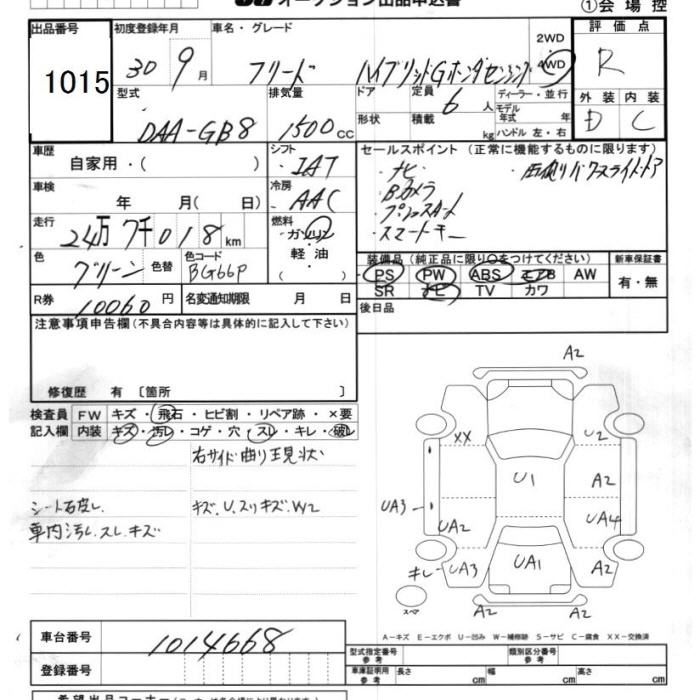 オークション出品申込書
①会場控
出品番号 初度登録年月 車名・グレード 2WD 4WD 評価点
1015 30 9月 フリード ハイブリッドGホンダセンシング R
型式 排気量 ドア 定員 6人 ディーラー・並行 モデル年式 年 外装 内装
DAA-GB8 1500cc 形状 積載 kg ハンドル 左・右 D C
車歴 自家用・( ) シフト IAT
セールスポイント (正常に機能するものに限ります)
・ナビ
・Bカメラ
・プッシュスタート
・スマートキー
車検 年 月( 日) 冷房 AAC
走行 24万7千018km 燃料 ガソリン 軽油 ( )
色 グリーン 色替 色コード BG66P
装備品 (純正品に限り○をつけてください) 新車保証書
PS PW ABS エアB AW 有・無
SR ナビ TV カワ
R券 10060円 名変通知期限 月 日
後日品
注意事項申告欄(不具合内容等は具体的に記入して下さい)
修復歴 有〔箇所 〕
検査員記入欄 FW キズ・飛石・ヒビ割・リペア跡・×要
内装 キズ・汚レ・コゲ・穴・スレ・キレ・破レ
右サイド曲り王見状
シート右皮し キズ、U、スリキズ、W2
車内汚し、スレ、キズ
A2
XX U2
U1 A2
UA3 UA2 UA4
キレ UA3 UA1 A2
スペア A2 A2
A-キズ E-エクボ U-凹み W-補修跡 S-サビ C-腐食 XX-交換済
車台番号 1014668
型式指定番号 参考 類別区分番号 参考
登録番号
車庫証明用 参考 長さ cm 幅 cm 高さ cm
希望出品コーナー